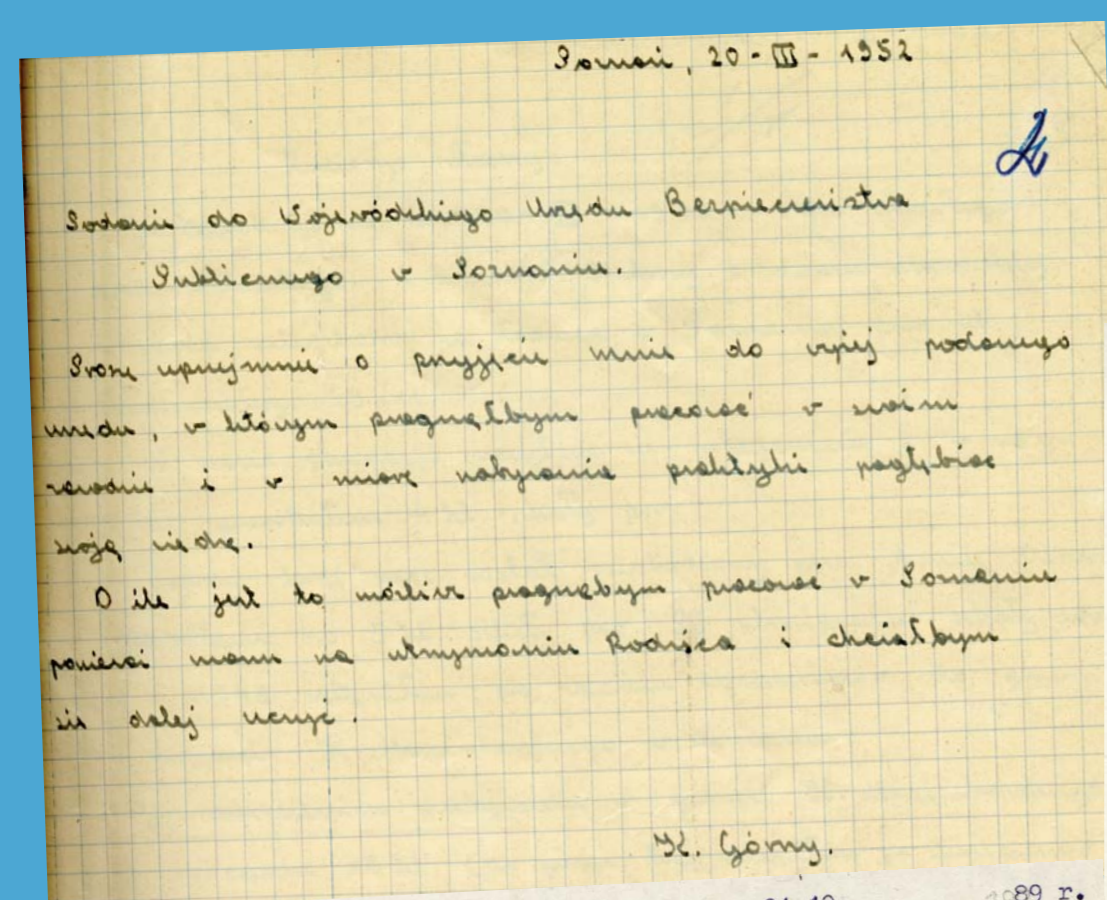 Poznań, 20 - III - 1952
Podanie do Wojewódzkiego Urzędu Bezpieczeństwa
Publicznego w Poznaniu.
Proszę uprzejmnie o przyjęcie mnie do wyżej podanego
urzędu, w którym pragnąłbym pracować w swoim
zawodzie i w miarę nabywania praktyki pogłębiać
swoją wiedzę.
O ile jest to możliwe pragnąbym pracować w Poznaniu
ponieważ mam na utrzymaniu Rodzica i chciałbym
się dalej uczyć.
K. Górny.
89 r.